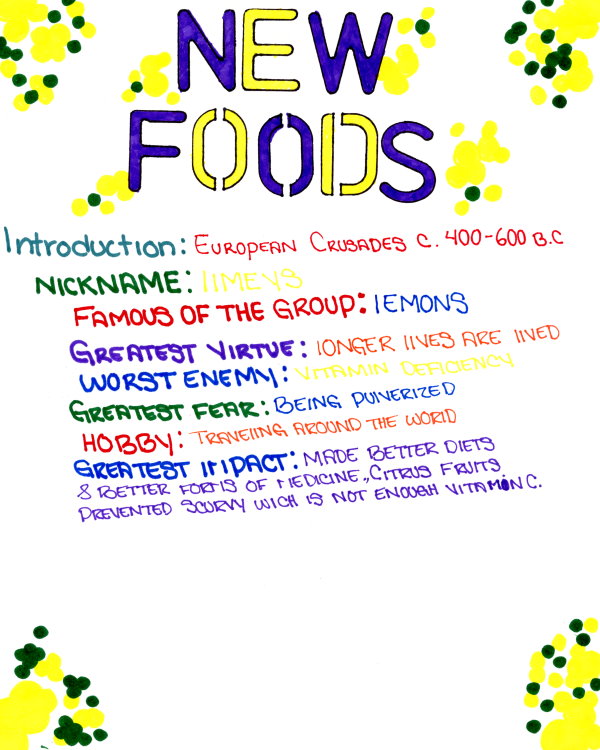 NEW
FOODS
Introduction: EUROPEAN CRUSADES C. 400-600 B.C
NICKNAME: lIMEYS
FAMOUS OF THE GROUP: lEMONS
GREATEST VIRTUE: lONGER lIVES ARE lIVED
WORST ENEMY: VITAMIN DEFICIENCY
GREATEST FEAR: BEING PUlVERIZED
HOBBY: TRAVElING AROUND THE WORlD
GREATEST IMPACT: MADE BETTER DIETS
& BETTER FORMS OF MEDICINE., CITRUS FRUITS
PREVENTED SCURVY WICH IS NOT ENOUGH VITAMIN C.